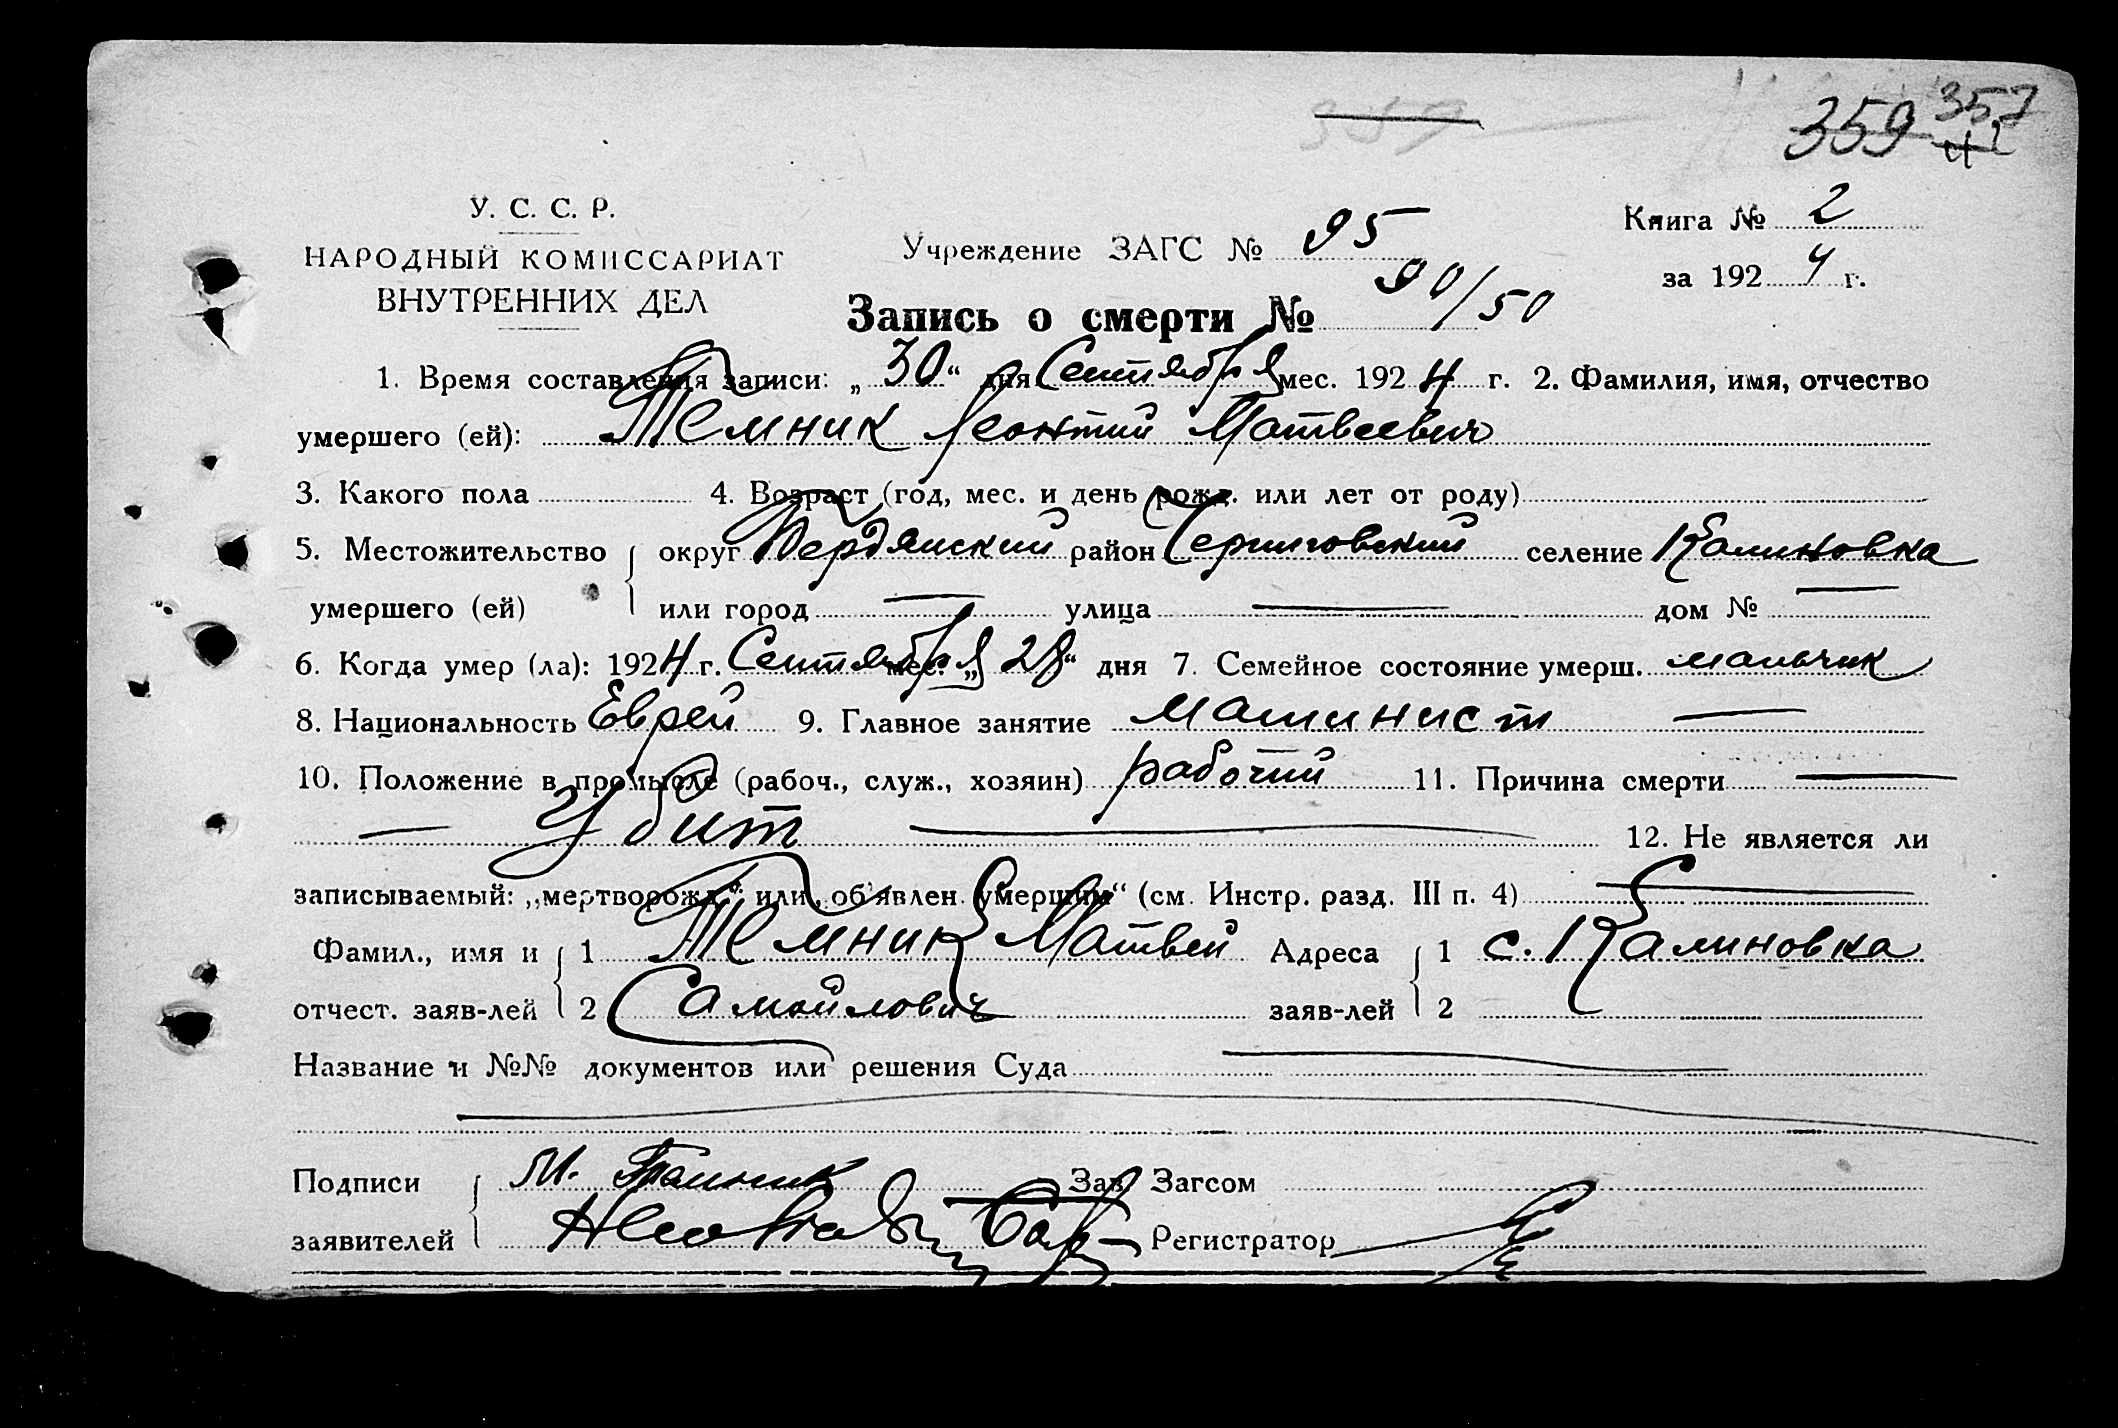 359 357
У. С. С. Р.
НАРОДНЫЙ КОМИССАРИАТ
ВНУТРЕННИХ ДЕЛ
Учреждение ЗАГС № 95
Книга № 2
за 1924 г.
Запись о смерти № 90/50
1. Время составления записи: „30“ дня Сентября мес. 1924 г. 2. Фамилия, имя, отчество
умершего (ей): Темник Леонтий Матвеевич
3. Какого пола 4. Возраст (год, мес. и день рожд. или лет от роду)
5. Местожительство округ Бердянский район Черниговский селение Калиновка
умершего (ей) или город — улица — дом № —
6. Когда умер (ла): 1924 г. Сентября мес. „28“ дня 7. Семейное состояние умерш. мальчик
8. Национальность Еврей 9. Главное занятие машинист —
10. Положение в промысле (рабоч., служ., хозяин) рабочий 11. Причина смерти —
— Убит — 12. Не является ли
записываемый: „мертворожд.“ или „об'явлен умершим“ (см. Инстр. разд. III п. 4) —
Фамил., имя и 1 Темник Матвей Адреса 1 с. Калиновка
отчест. заяв-лей 2 Самойлович заяв-лей 2
Название и №№ документов или решения Суда —
Подписи М. Темник Зав. Загсом
заявителей Регистратор